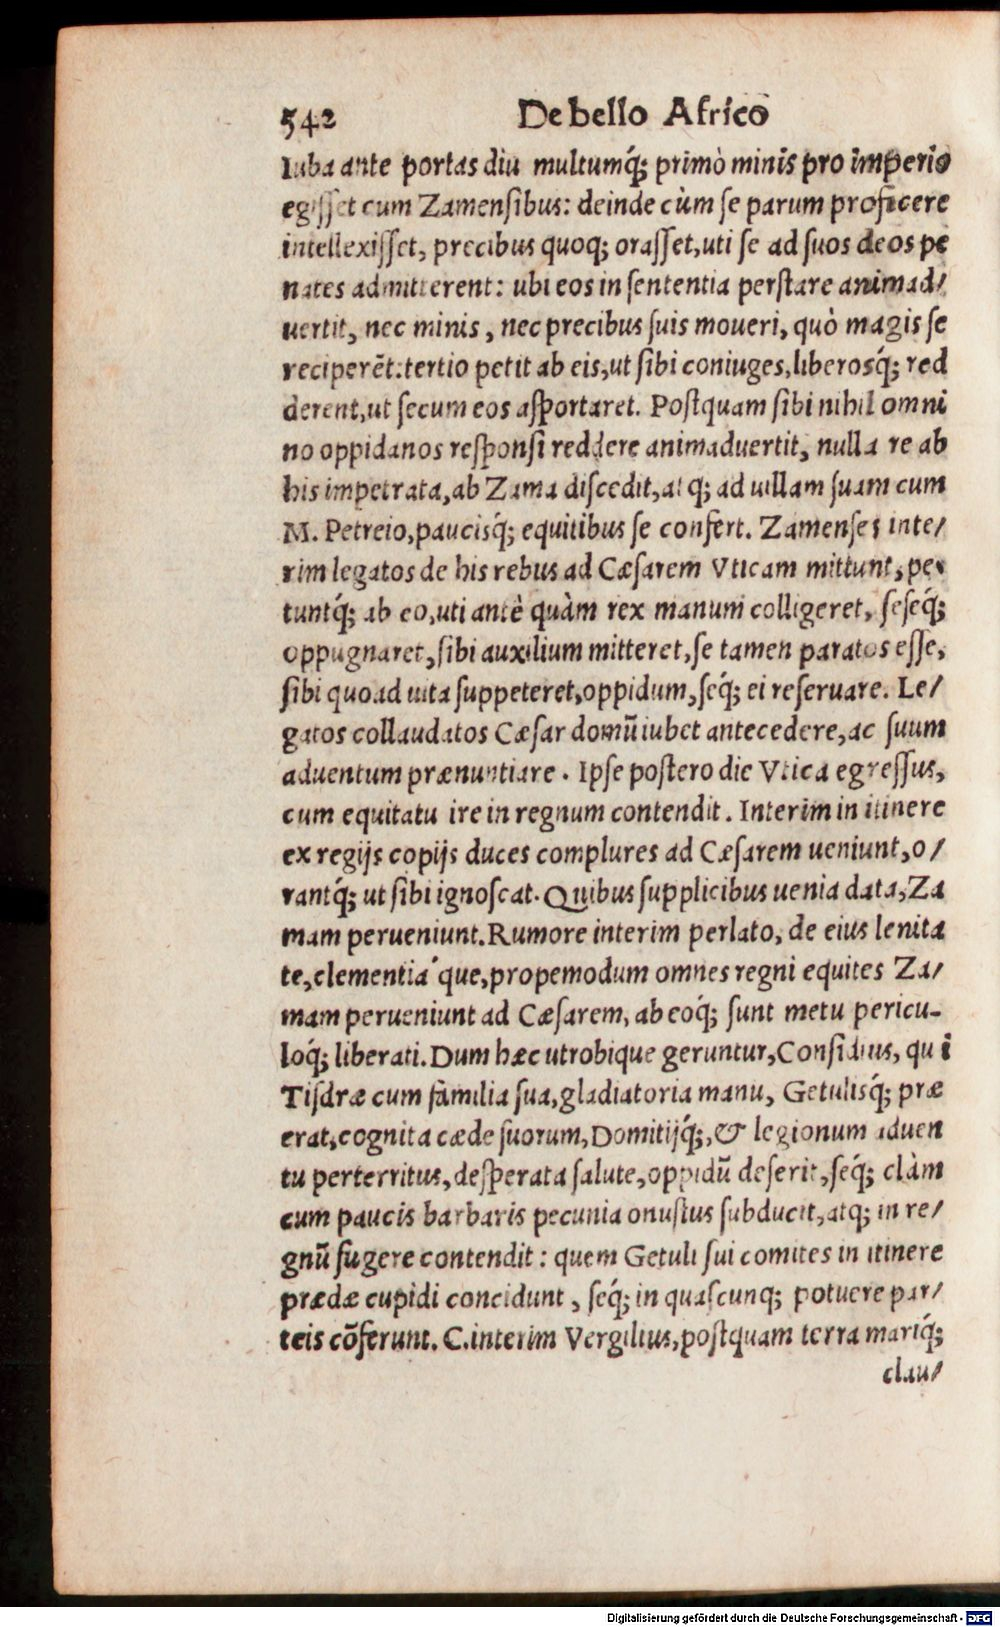 542 De bello Africo
Iuba ante portas diu multumq́; primò minis pro imperio
egiſſet cum Zamenſibus: deinde cùm ſe parum proficere
intellexiſſet, precibus quoq; oraſſet,uti ſe ad ſuos deos pe
nates admitterent: ubi eos in ſententia perſtare animad/
uertit, nec minis, nec precibus ſuis moueri, quò magis ſe
reciperẽt:tertio petit ab eis,ut ſibi coniuges,liberosq́; red
derent,ut ſecum eos aſportaret. Poſtquam ſibi nihil omni
no oppidanos reſponſi reddere animaduertit, nulla re ab
his impetrata,ab Zama diſcedit,atq; ad uillam ſuam cum
M. Petreio,paucisq́; equitibus ſe confert. Zamenſes inte/
rim legatos de his rebus ad Cæſarem Vticam mittunt, pe
tuntq́; ab eo,uti antè quàm rex manum colligeret, ſeſeq́;
oppugnaret,ſibi auxilium mitteret,ſe tamen paratos eſſe,
ſibi quoad uita ſuppeteret,oppidum,ſeq́; ei reſeruare. Le/
gatos collaudatos Cæſar domũ iubet antecedere,ac ſuum
aduentum prænuntiare. Ipſe poſtero die Vtica egreſſus,
cum equitatu ire in regnum contendit. Interim in itinere
ex regijs copijs duces complures ad Cæſarem ueniunt,o/
rantq́; ut ſibi ignoſcat. Quibus ſupplicibus uenia data,Za
mam perueniunt.Rumore interim perlato, de eius lenita
te,clementia´que,propemodum omnes regni equites Za/
mam perueniunt ad Cæſarem, ab eoq́; ſunt metu pericu-
loq́; liberati.Dum hæc utrobique geruntur,Conſidius, qui
Tiſdræ cum familia ſua,gladiatoria manu, Getulisq́; præ
erat,cognita cæde ſuorum,Domitijq́;,& legionum aduen
tu perterritus,deſperata ſalute,oppidũ deſerit,ſeq́; clàm
cum paucis barbaris pecunia onuſtus ſubducit,atq; in re/
gnũ fugere contendit: quem Getuli ſui comites in itinere
prædæ cupidi concidunt, ſeq́; in quaſcunq; potuere par/
teis cõferunt. C.interim Vergilius,poſtquam terra mariq́;
clau/
Digitalisierung gefördert durch die Deutsche Forschungsgemeinschaft - DFG